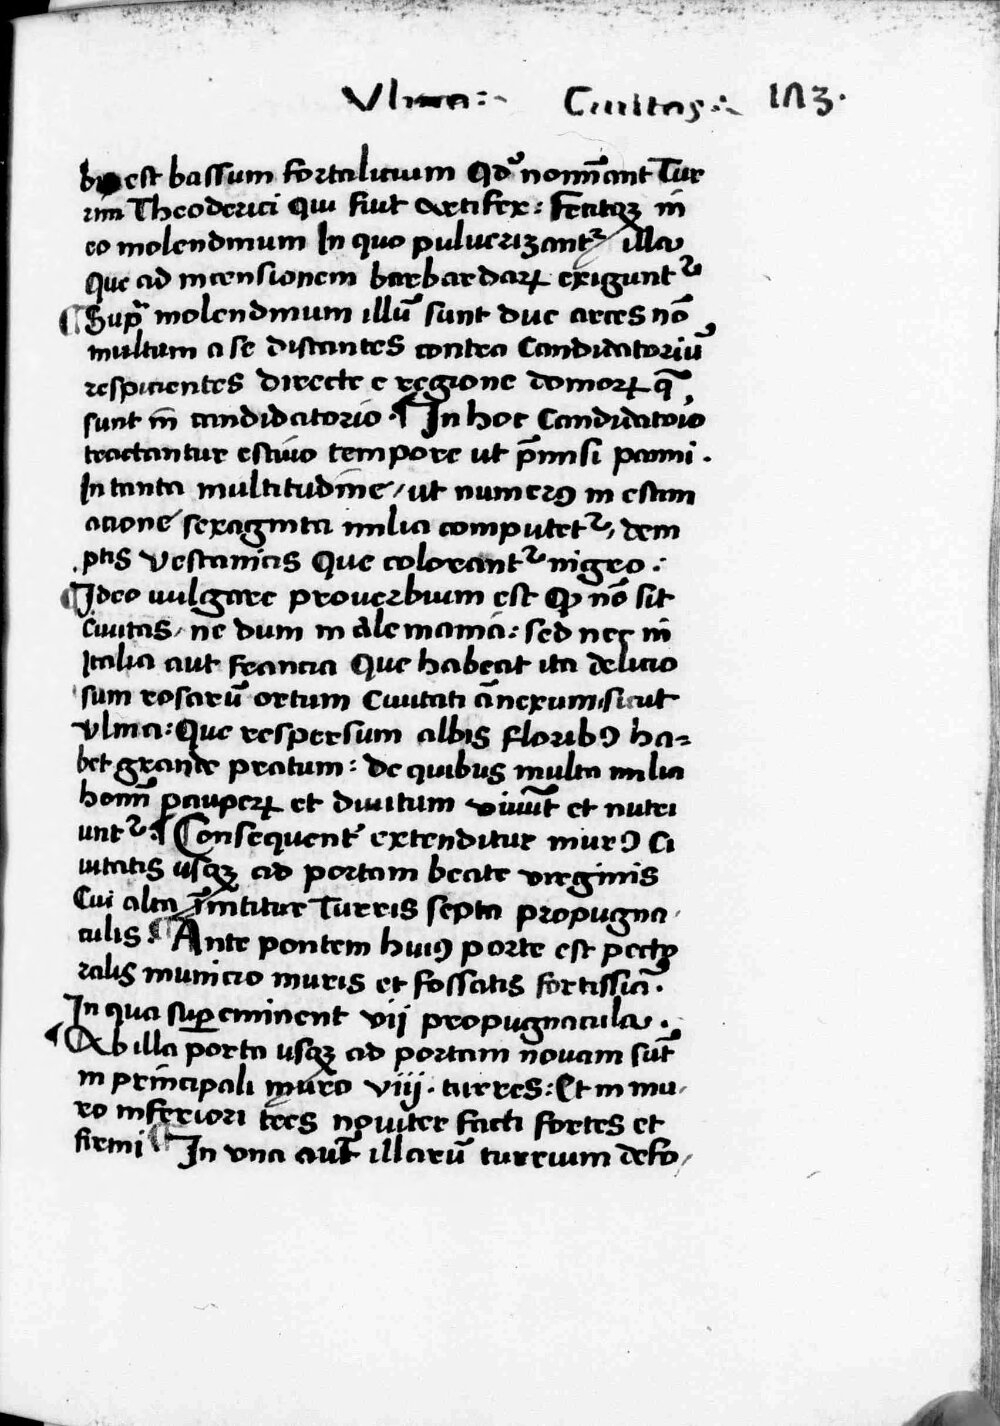 Vlma: Ciuitas: 1Λ3.
bi est bassum fortalitium Qdͦ nomīant Tur
rim Theoderici Qui fuit Artifex: Fecitqꝫ in
eo molendinum In quo puluerizantᷣ illa
Que ad incensionem barbardarꝝ exiguntᷣ
¶ Supᷓ molendinum illū sunt due arces nō
multum a se distantes contra Candidatoriū
respicientes directe e regione domorꝝ q̄
sunt in candidatorio. ¶ In hoc Candidatoio
tractantur estiuo tempore ut p̄misi panni.
In tanta multitudine / ut numerꝰ in estim
acione sexaginta milia computetᷣ / dem
ptis Vestamētis Que colorantᷣ nigro.
¶ Ideo uulgare prouerbium est Qꝫ nō sit
Ciuitas / ne dum in Alemania: sed nec in
Italia aut francia Que habeat ita delicio
sum rosarū ortum Ciuitati ānexum sicut
Vlma: Que respersum albis floribꝰ ha=
bet grande pratum: de quibus multa milia
homī pauperꝝ et diuitum viuūt et nutri
untᷣ. ¶ Consequent̄ extenditur murꝰ Ci
uitatis usqꝫ ad portam beate virginis
Cui alta īmititur Turris septa propugna
culis. ¶ Ante pontem huiꝰ porte est pecto
ralis municio muris et fossatis fortissiā.
In qua supeminent vij propugnacula.
¶ Ab illa porta usqꝫ ad portam nouam sūt
in principali muro viij. turres: Et in mu
ro inferiori tres nouiter facti fortes et
firmi ¶ In una aut̄ illarū turrium defo